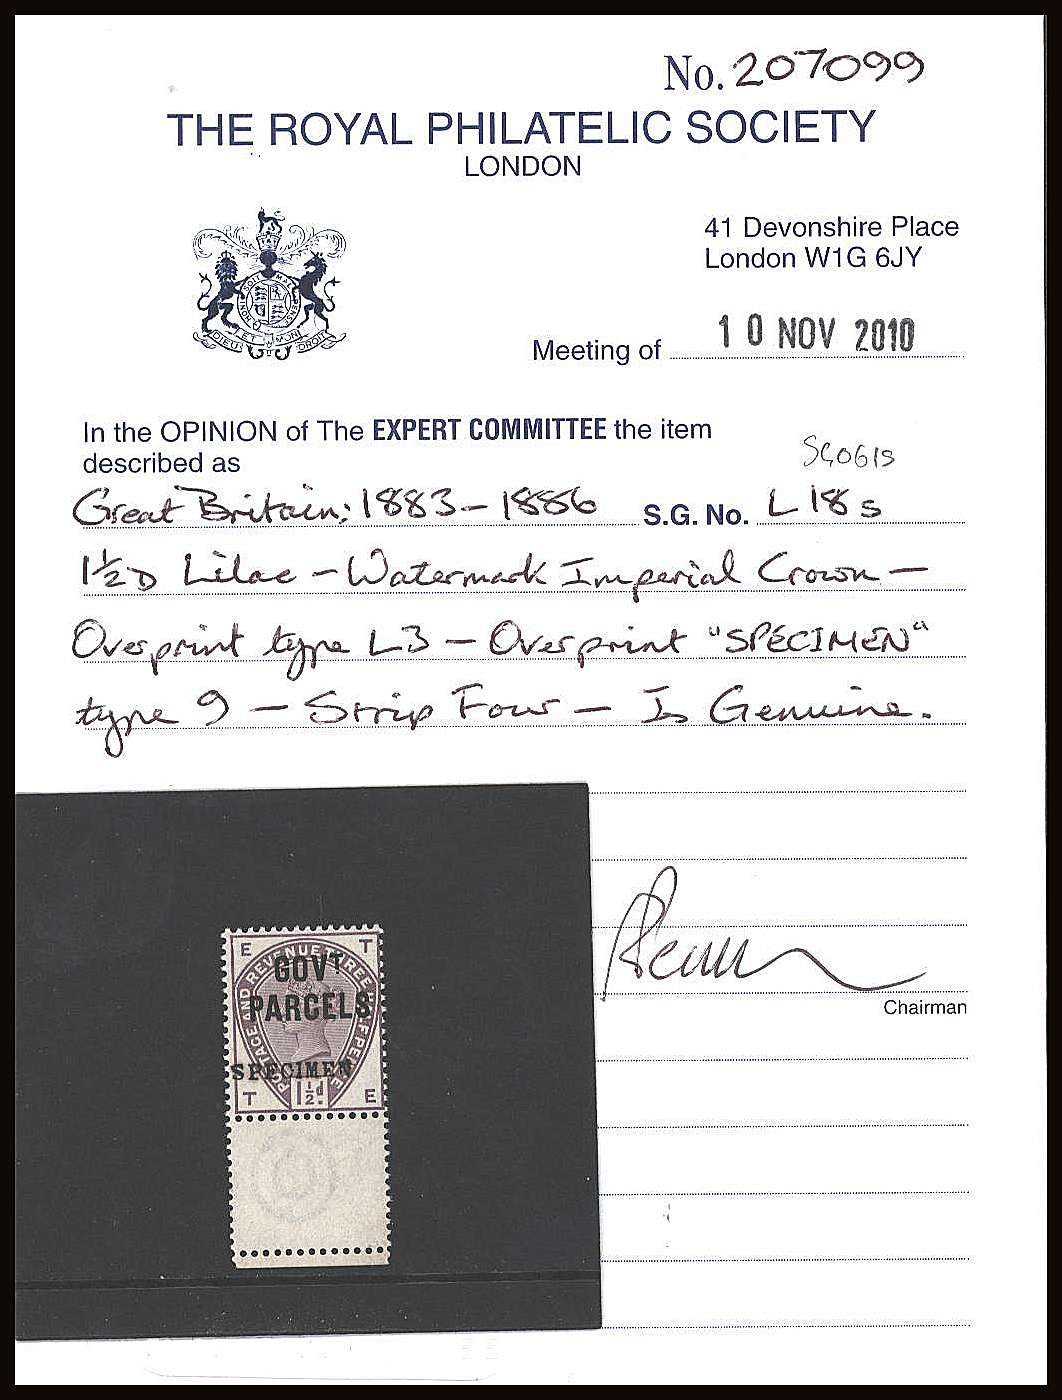 No. 207099
THE ROYAL PHILATELIC SOCIETY
LONDON
41 Devonshire Place
London W1G 6JY
DIEU ET MON DROIT
Meeting of 10 NOV 2010
In the OPINION of The EXPERT COMMITTEE the item
described as
SGO61s
Great Britain; 1883-1886 S.G. No. L18s
1½D Lilac - Watermark Imperial Crown -
Overprint type L3 - Overprint "SPECIMEN"
type 9 - Strip Four - Is Genuine.
Chairman
E T
POSTAGE AND REVENUE THREE HALF PENCE
GOVT
PARCELS
SPECIMEN
T 1½d. E